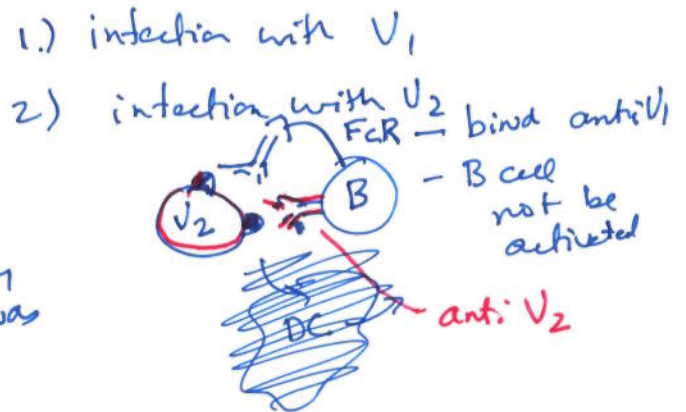 1.) infection with V1
2) infection with V2
FcR – bind anti V1
V2
B
– B cell
not be
activated
DC
anti V2